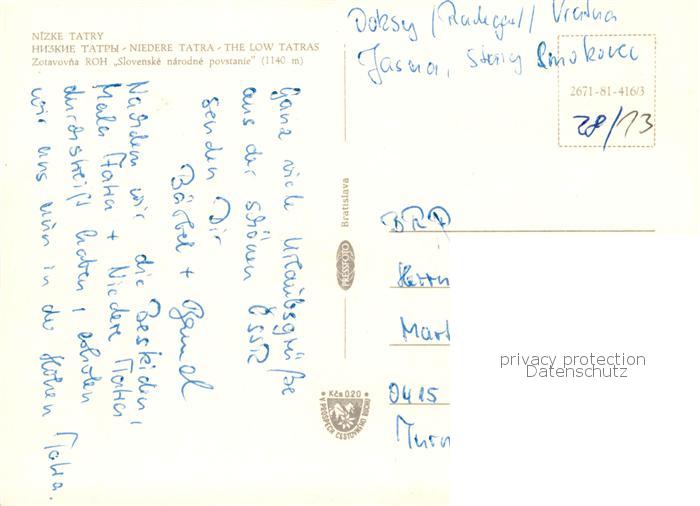 NÍZKE TATRY
НИЗКИЕ ТАТРЫ - NIEDERE TATRA - THE LOW TATRAS
Zotavovňa ROH „Slovenské národné povstanie" (1140 m)
Doksy / Vratna
Jasna, Stary Smokovec
2671-81-416/3
28/13
Ganz viele Urlaubsgrüße
aus der schönen ČSSR
senden Dir
Bärbel + Bernd
Nachdem wir die Beskiden,
Mala Fatra + Niedere Tatra
durchstreift haben, erholen
wir uns nun in der Hohen Tatra.
Bratislava
PRESSFOTO
Kčs 0,20
V PROSPECH CESTOVNÉHO RUCHU
Herrn
Mart
0415
privacy protection
Datenschutz